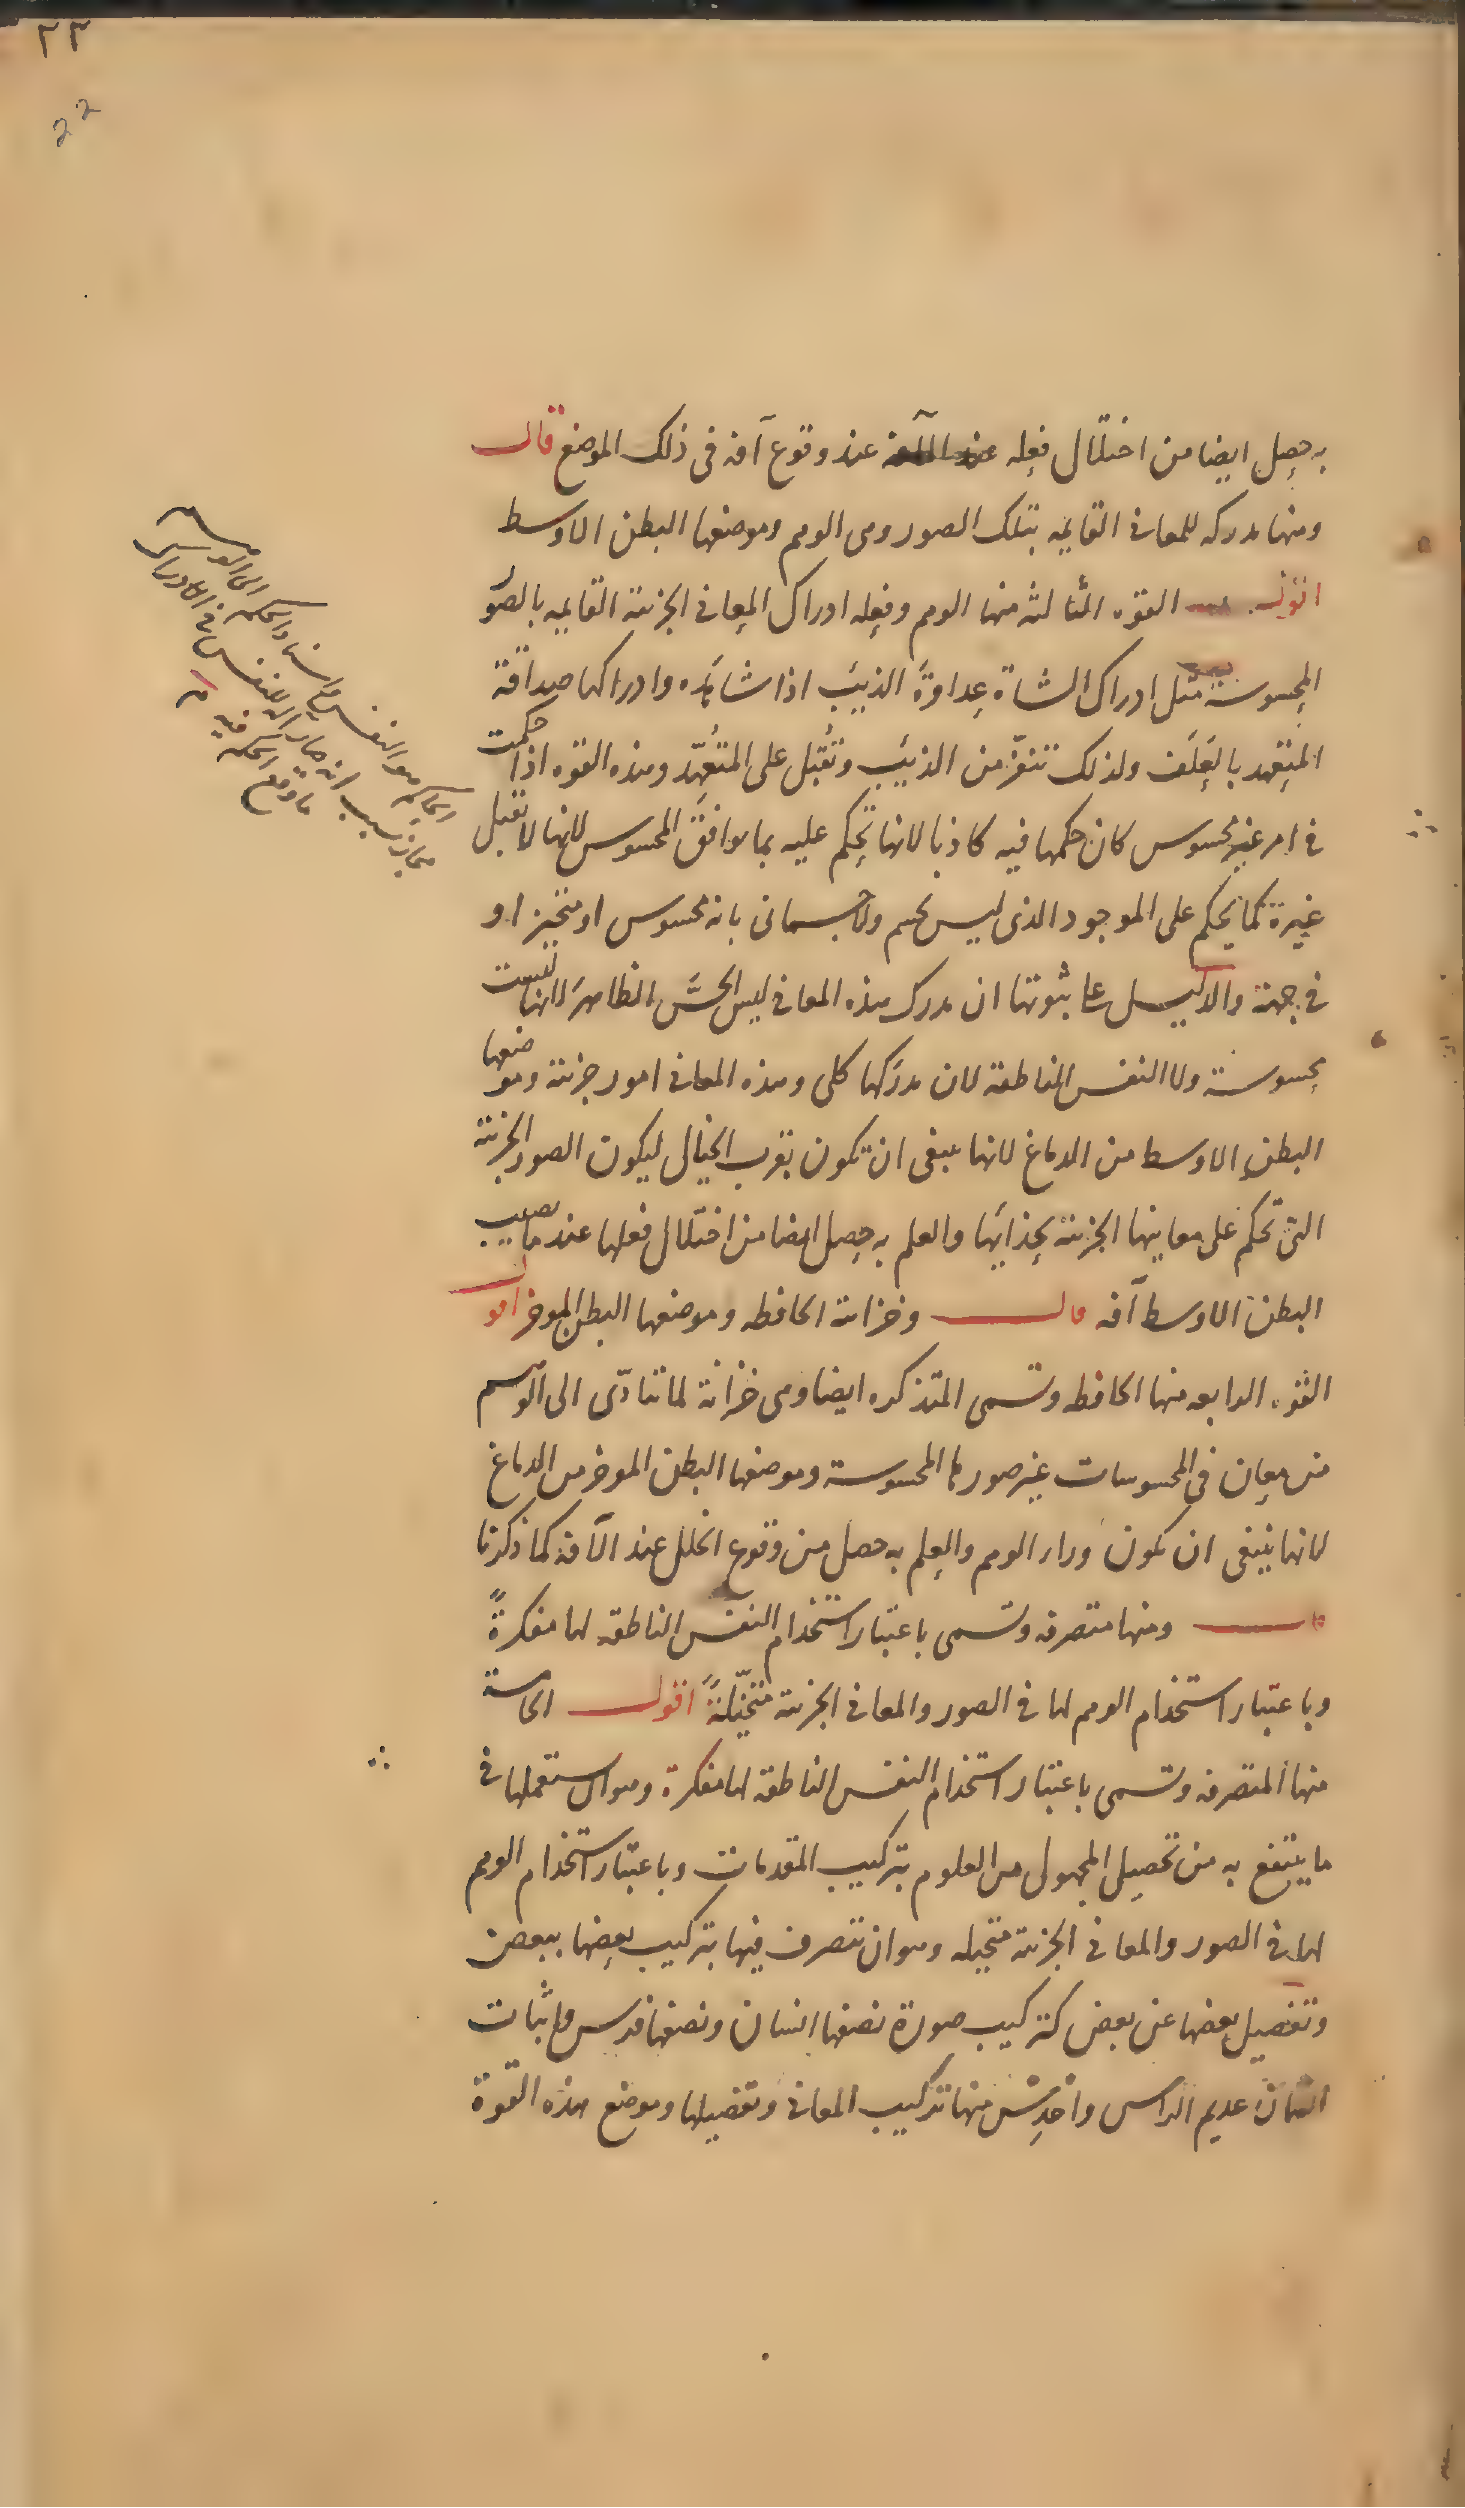 ٢٣
22
به حصل ايضا من اختلال فعله عند وقوع آفة فى ذلك الموضع قال
ومنها مدركه للمعانى القايمه بتلك الصور وهى الوهم وموضعها البطن الاوسط
اقول القوه الثالثه منها الوهم وفعله ادراك المعانى الجزئية القايمه بالصور
المحسوسة مثل ادراك الشاة عداوةَ الذيب اذا شاهده وادراكها صداقة
المتعهد بالعلف ولذلك تنفرّ من الذيب وتُقبل على المتعهّد وهذه القوه اذا حكمت
فى امر غير محسوس كان حكمها فيه كاذبا لانها تحكم عليه بما يوافق المحسوس لانها لا تقبل
غيرة كما يحكم على الموجود الذى ليس بجسم ولا جسمانى بانه محسوس او متحيز او
فى جهة والدليل على ثبوتها ان مدرك هذه المعانى ليس الحسَّ الظاهرَ لانها ليست
بمحسوسة ولا النفس الناطقة لان مدركها كلى وهذه المعانى امور جزئية وموضعها
البطن الاوسط من الدماغ لانها ينبغى ان تكون بقرب الخيال ليكون الصور الجزئية
التى تحكم على معانيها الجزئية بحذائها والعلم به حصل ايضا من اختلال فعلها عند ما يصيب
البطن الاوسط آفه قال وخزانة الحافظه وموضعها البطن الموخر اقول
القوه الرابعه منها الحافظه وتسمى المتذكره ايضا وهى خزانة لما تتادّى الى الوهم
من معان فى المحسوسات غير صورها المحسوسة وموضعها البطن الموخر من الدماغ
لانها ينبغى ان تكون وراء الوهم والعلم به حصل من وقوع الخلل عند الآفة كما ذكرنا
قال ومنها متصرفه وتسمى باعتبار استخدام النفس الناطقه لها مفكرةً
وباعتبار استخدام الوهم لها فى الصور والمعانى الجزئية متخيّلةً اقول الخامسة
منها المتصرفه وتسمى باعتبار استخدام النفس الناطقه لها مفكرة وهو ان يستعملها فى
ما ينتفع به من تحصيل المجهول من العلوم بتركيب المقدمات وباعتبار استخدام الوهم
لها فى الصور والمعانى الجزئية متخيله وهو ان تتصرف فيها بتركيب بعضها ببعض
وتفصيل بعضها عن بعض كتركيب صورة نصفها انسان ونصفها فرس واثبات
انسان عديم الراس منها تركيب المعانى وتفصيلها وموضع هذه القوة
الحاكم هو النفس واسناد الحكم الى الوهم
مجاز بسبب انه صار اله للنفس فى الادراك
ما وقع الحكم فيه